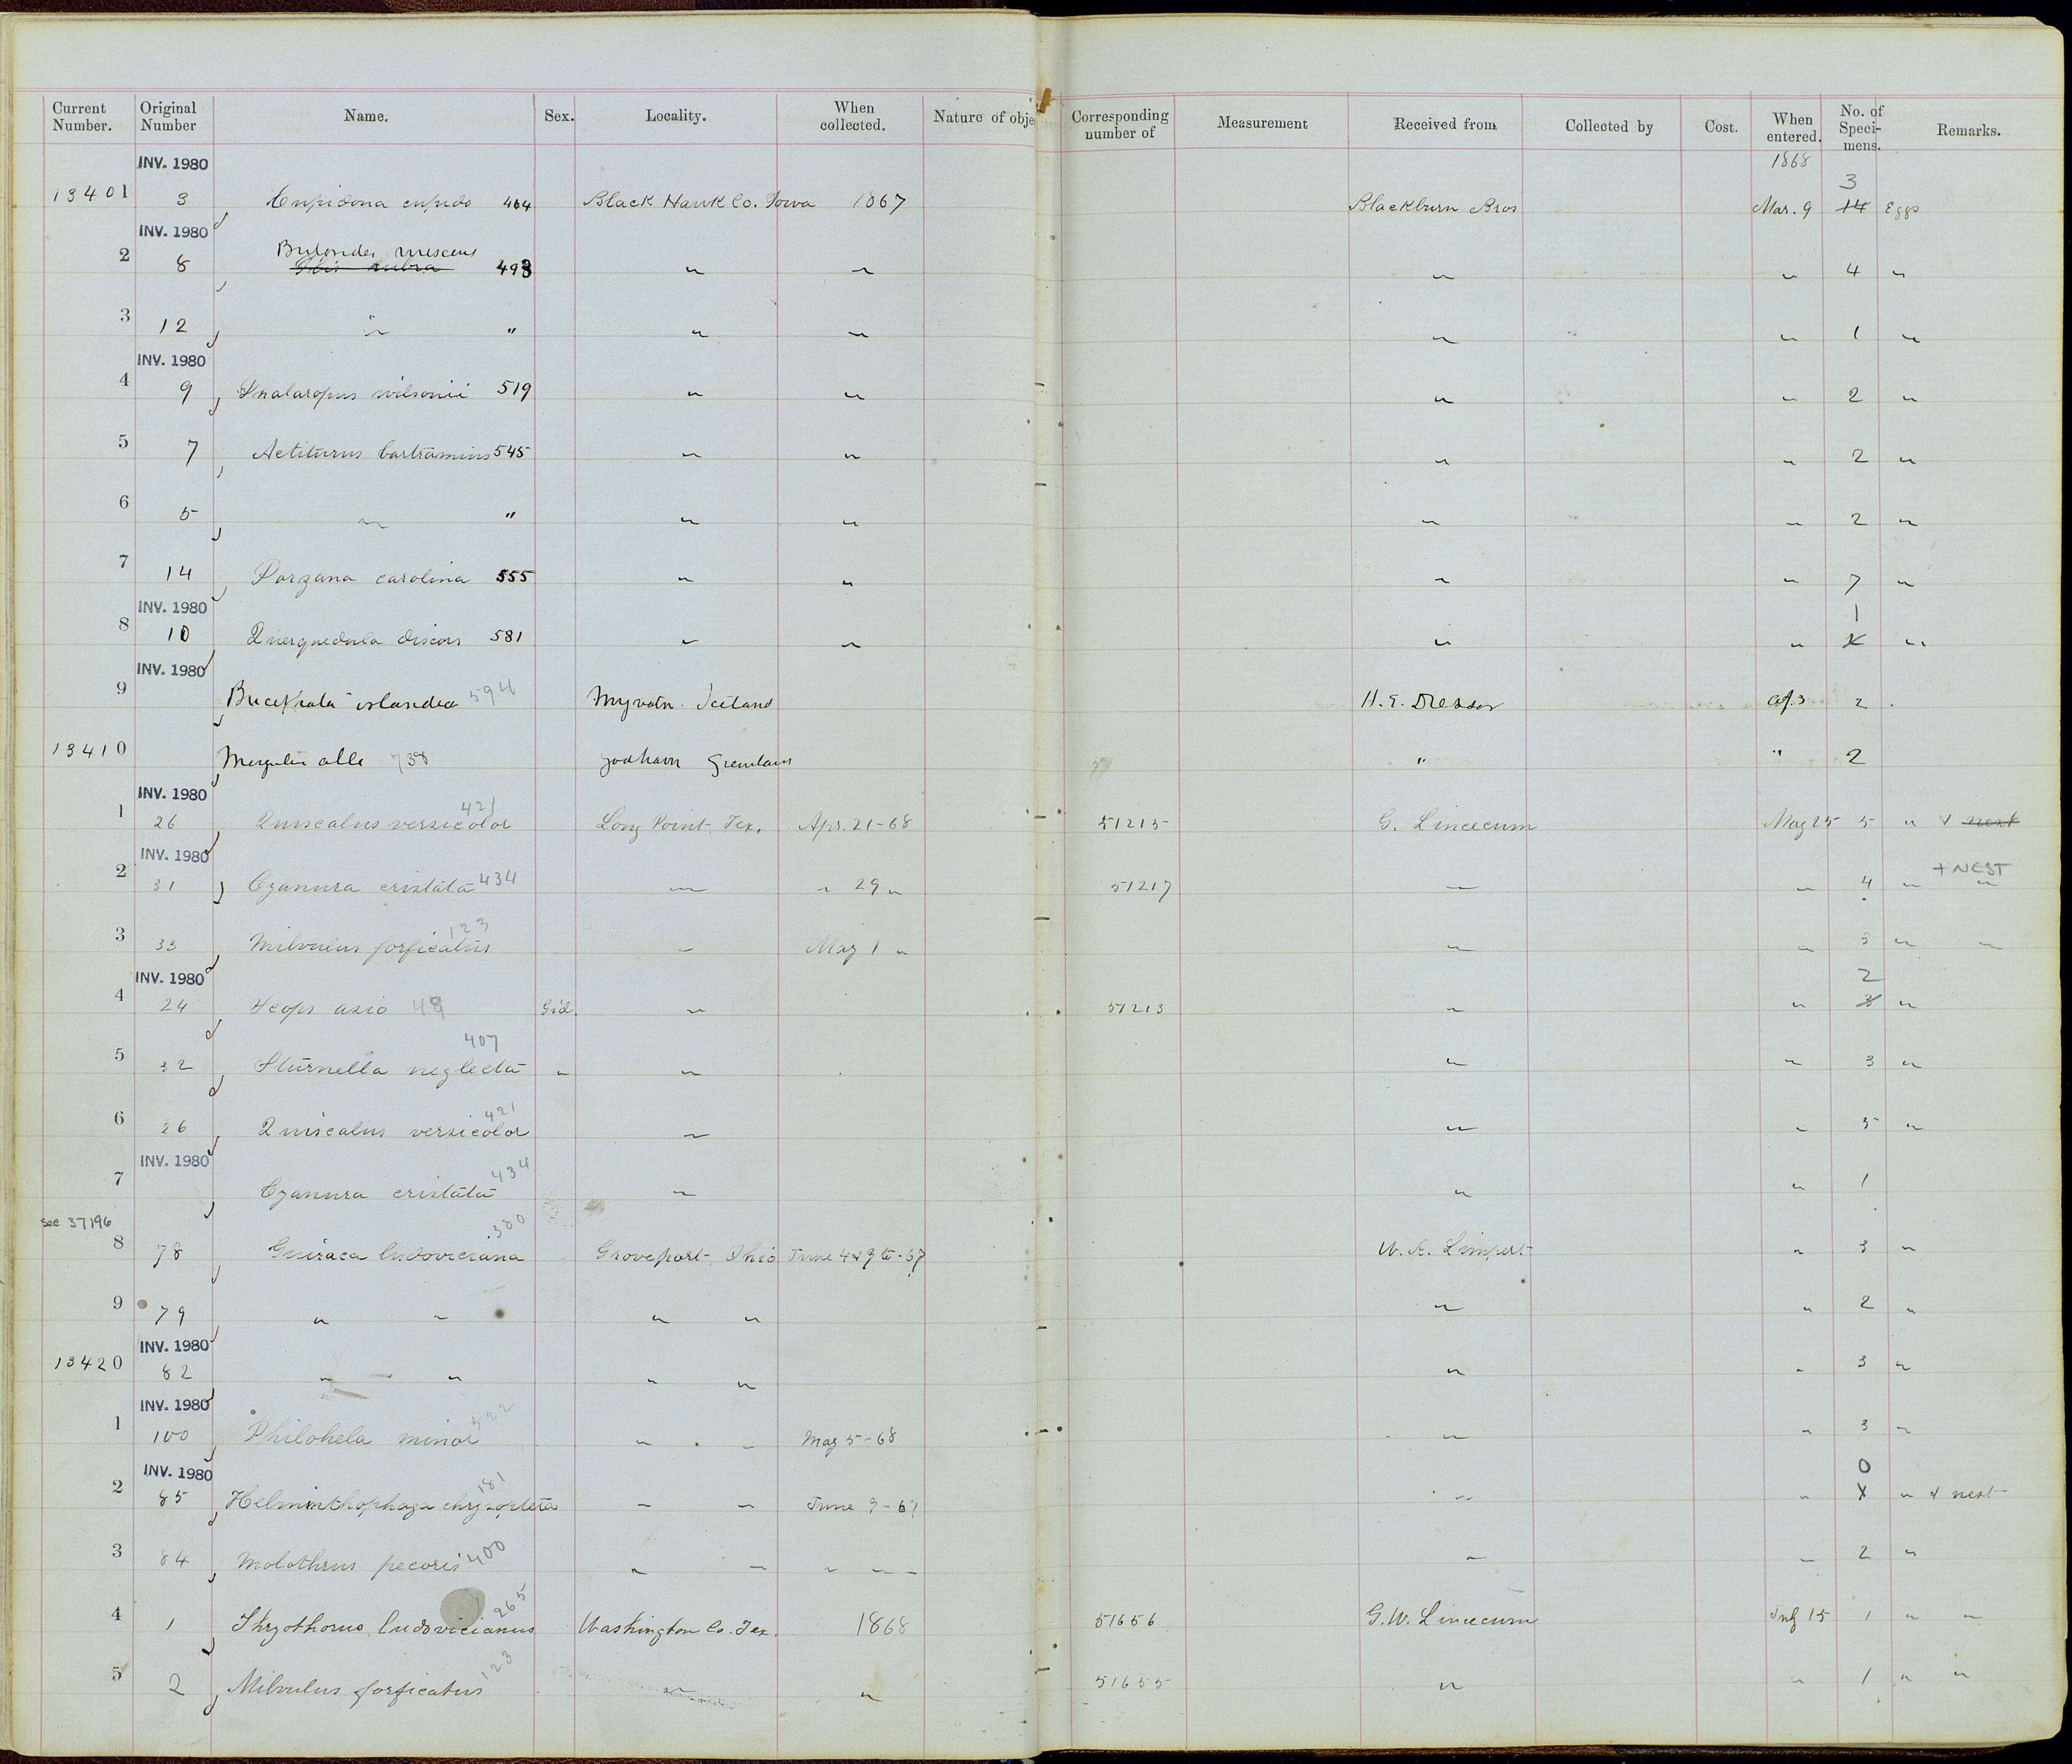 Current Number. Original Number Name. Sex. Locality. When collected. Nature of obje Corresponding number of Measurement Received from Collected by Cost. When entered. No. of Speci-mens. Remarks.
INV. 1980 1868
13401 3 Cupidona cupido 464 Black Hawk Co. Iowa 1867 Blackburn Bros Mar. 9 3 14 Eggs
INV. 1980
2 8 Ibis rubra 493 " " " " 4 "
3 12 " " " " " " 1 "
INV. 1980
4 9 Phalaropus wilsonii 519 " " " " 2 "
5 7 Actiturus bartramius 545 " " " " 2 "
6 5 " " " " " " 2 "
7 14 Porzana carolina 555 " " " " 7 "
INV. 1980
8 10 Querquedula discors 581 " " " " 1 "
INV. 1980
9 Bucephala islandica 594 Myvatn. Iceland H. E. Dresser Ap. 3 2
13410 Mergulus alle 738 Godhavn Greenland " " 2
INV. 1980
1 26 Quiscalus versicolor 421 Long Point, Tex. Apr. 21-68 51215 G. Lincecum May 25 5 " & nest
INV. 1980
2 31 Cyanura cristata 434 " " 29 " 51217 " " 4 " " + NEST
3 33 Milvulus forficatus 123 " May 1 " " " 3 " "
INV. 1980
4 24 Scops asio 49 Gid. " 51213 " " 2 3 "
5 32 Sturnella neglecta 407 " " " " 3 "
6 26 Quiscalus versicolor 421 " " " 5 "
INV. 1980
7 Cyanura cristata 434 " " " 1
see 37196
8 78 Guiraca ludoviciana 380 Groveport, Ohio June 4 & 9th-67 Limpert " 3 "
9 79 " " " " " " 2 "
INV. 1980
13420 82 " " " " " " 3 "
INV. 1980
1 100 Philohela minor 522 " " May 5-68 " " 3 "
INV. 1980
2 85 Helminthophaga chrysoptera 181 " " June 9-67 " " 0 " & nest
3 84 Molothrus pecoris 400 " " " " " " " 2 "
4 1 Thryothorus ludovicianus 265 Washington Co. Tex. 1868 51656 G. W. Lincecum July 15 1 " "
5 2 Milvulus forficatus 123 " " 51655 " " 1 " "